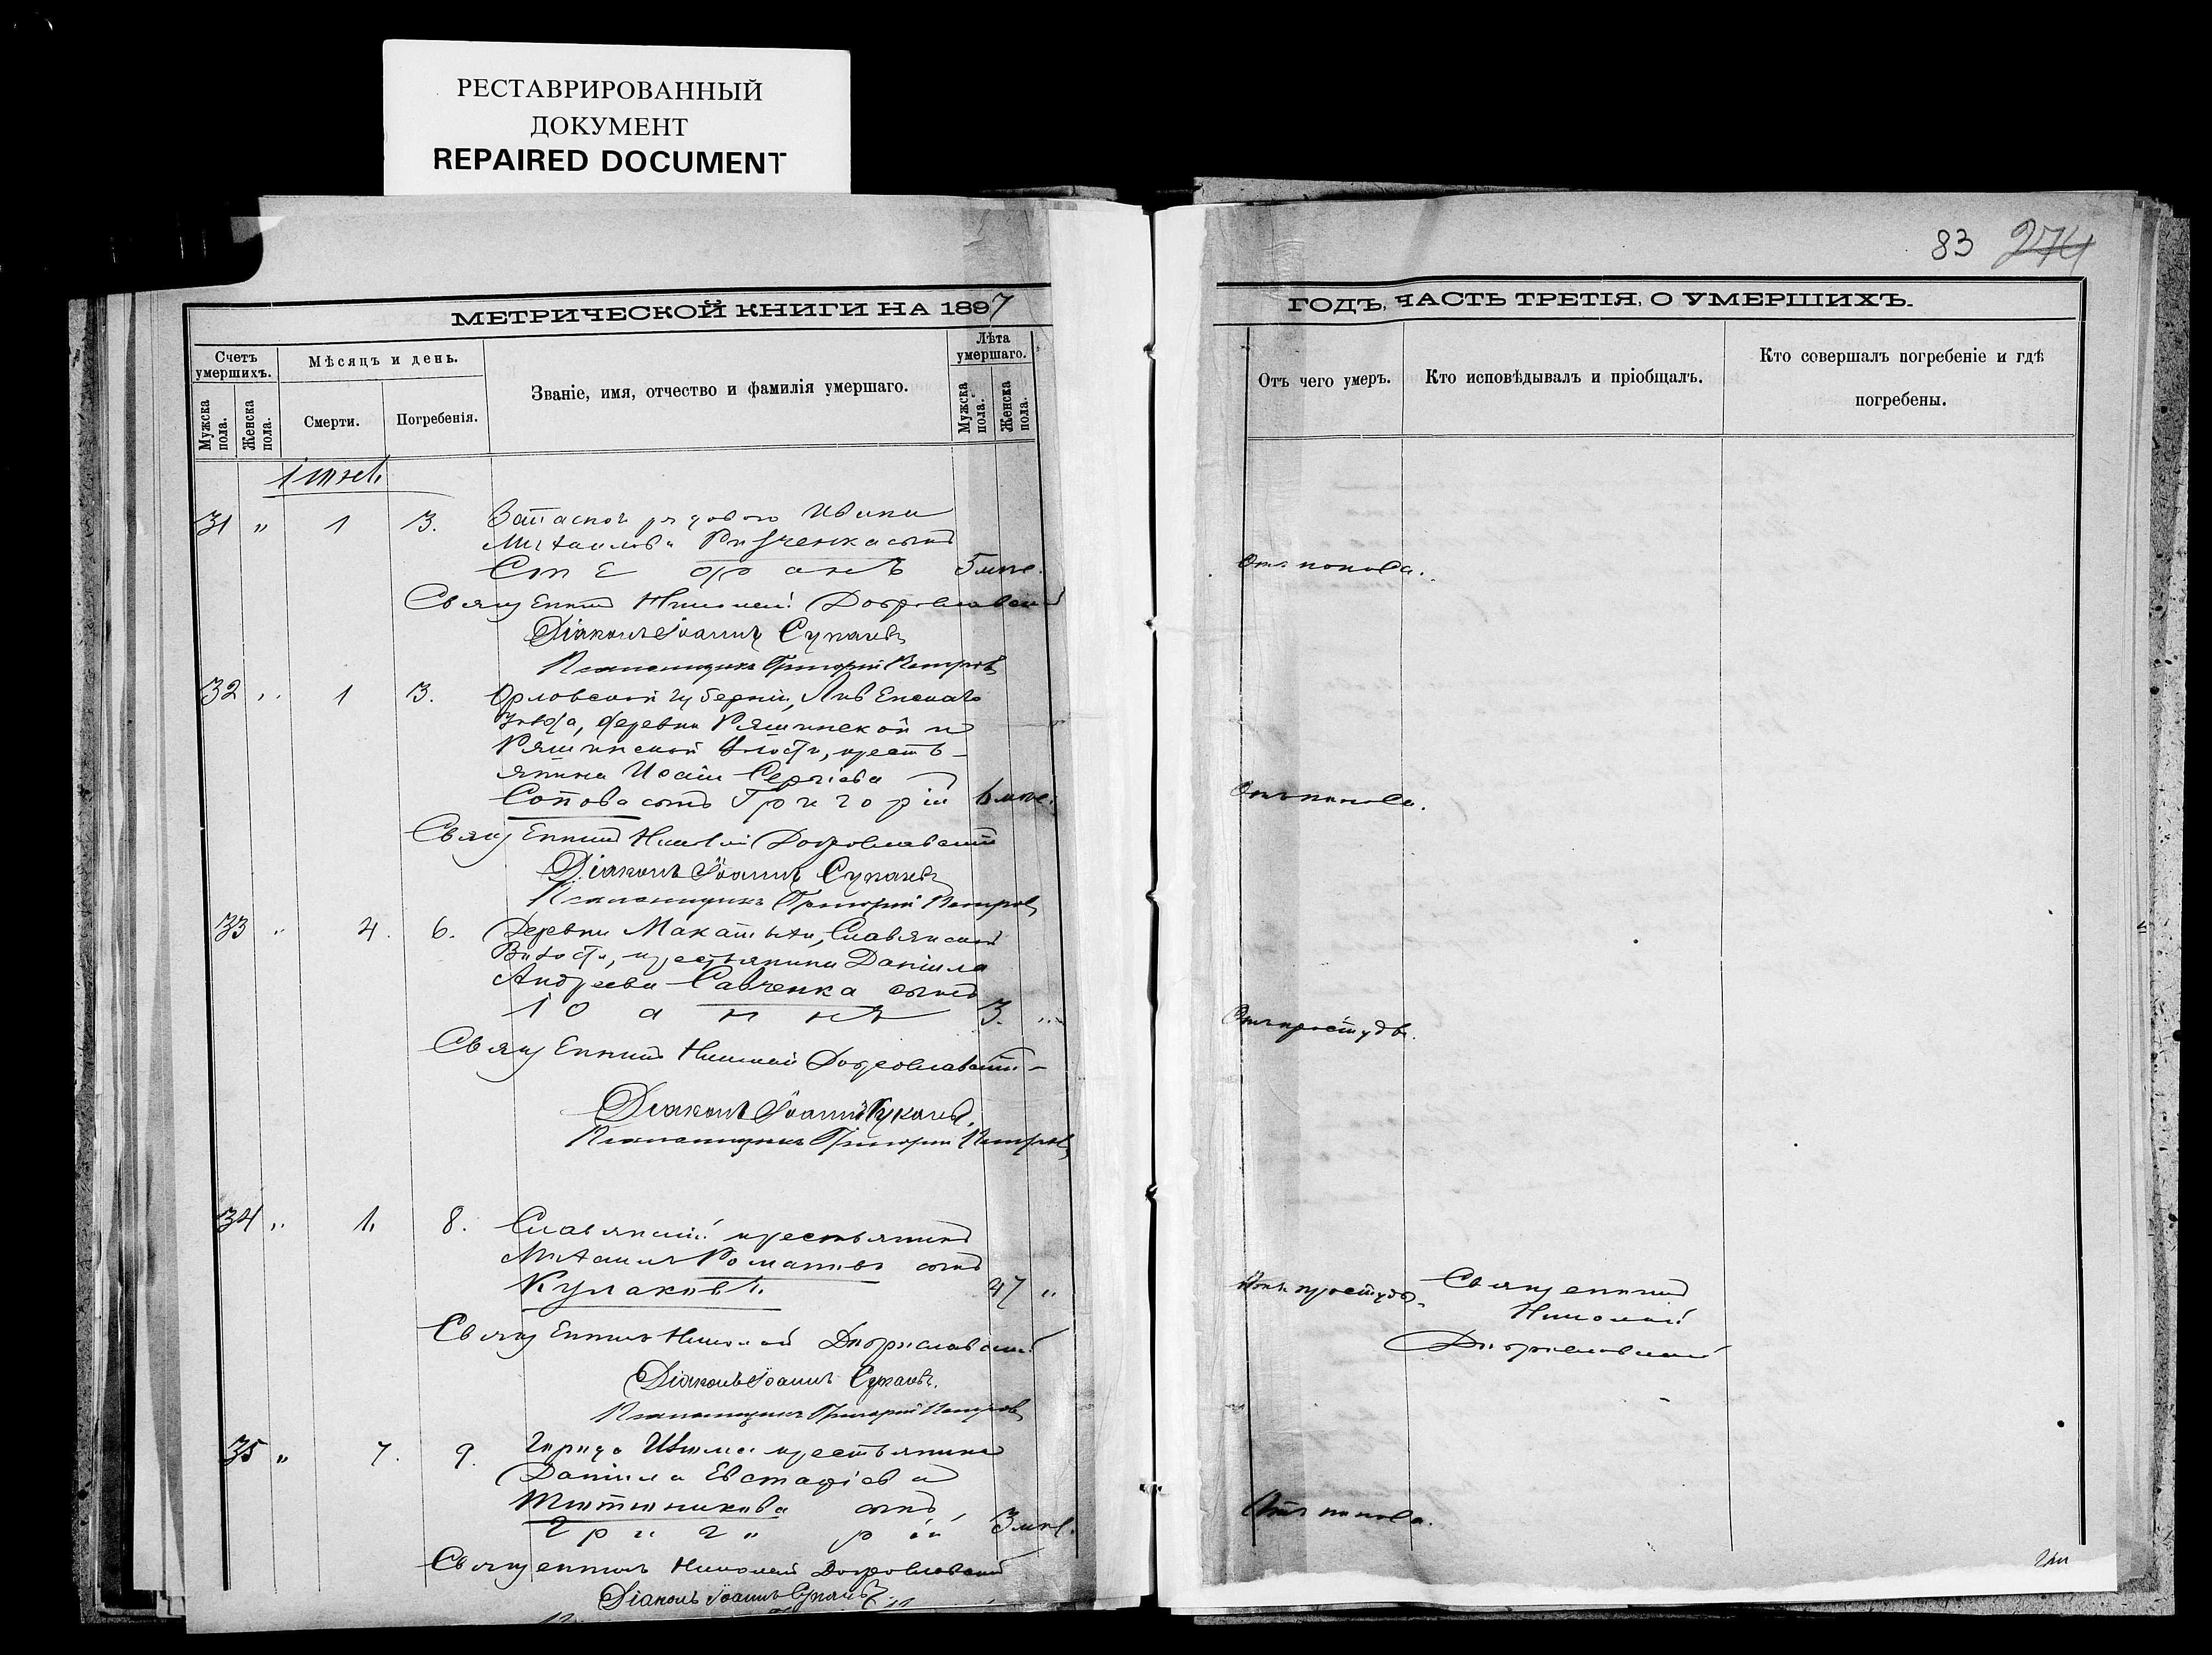 РЕСТАВРИРОВАННЫЙ
ДОКУМЕНТ
REPAIRED DOCUMENT
83 274
МЕТРИЧЕСКОЙ КНИГИ НА 1897
ГОДЪ, ЧАСТЬ ТРЕТІЯ, О УМЕРШИХЪ.
Счетъ умершихъ.
Мужска пола.
Женска пола.
Мѣсяцъ и день.
Смерти.
Погребенія.
Званіе, имя, отчество и фамилія умершаго.
Лѣта умершаго.
Мужска пола.
Женска пола.
Отъ чего умеръ.
Кто исповѣдывалъ и пріобщалъ.
Кто совершалъ погребеніе и гдѣ
погребены.
31 " 1 3. рядового Ивана
Михаилова сынъ
Стефанъ 5 мѣс. Отъ поноса.
Священникъ Николай Доброславскій
Діаконъ Іоаннъ
Псаломщикъ Григорій Петровъ
32 " 1 3. Орловской губерніи, Ливенскаго
уѣзда, деревни и
волости, кресть-
янина Исаіи Сергіева
сынъ Григорій 6 мѣс. Отъ поноса.
Священникъ Николай Доброславскій
Діаконъ Іоаннъ
Псаломщикъ Григорій Петровъ
33 " 4. 6. Деревни Славянской
волости, крестьянина Даніила
Андреева Савченка сынъ
Іоаннъ 3. " Отъ простуды.
Священникъ Николай Доброславскій
Діаконъ Іоаннъ
Псаломщикъ Григорій Петровъ
34 " 1. 8. Славянскій крестьянинъ
Михаилъ Романовъ сынъ
Кулаковъ. 47 " Отъ простуды. Священникъ
Николай
Доброславскій
Священникъ Николай Доброславскій
Діаконъ Іоаннъ
Псаломщикъ Григорій Петровъ
35 " 7. 9. Города Ишима крестьянина
Даніила Евстафіева
сынъ
Григорій 3 мѣс. Отъ поноса.
Священникъ Николай Доброславскій
Діаконъ Іоаннъ